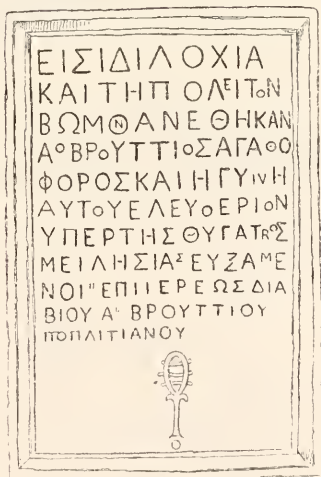 ΕΙΣΙΔΙΛΟΧΙΑ
ΚΑΙΤΗΠΟΛΕΙΤΟΝ
ΒΩΜΟΝΑΝΕΘΗΚΑΝ
ΑΟΒΡΟΥΤΤΙΟΣΑΓΑΘΟ
ΦΟΡΟΣΚΑΙΗΓΥΙΝΗ
ΑΥΤΟΥΕΛΕΥΟΕΡΙΟΝ
ΥΠΕΡΤΗΣΘΥΓΑΤROΣ
ΜΕΙΛΗΣΙΑΣΕΥΞΑΜΕ
ΝΟΙ"ΕΠΙΙΕΡΕΩΣΔΙΑ
ΒΙΟΥΑΛΒΡΟΥΤΤΙΟΥ
ΠΟΠΛΙΤΙΑΝΟΥ